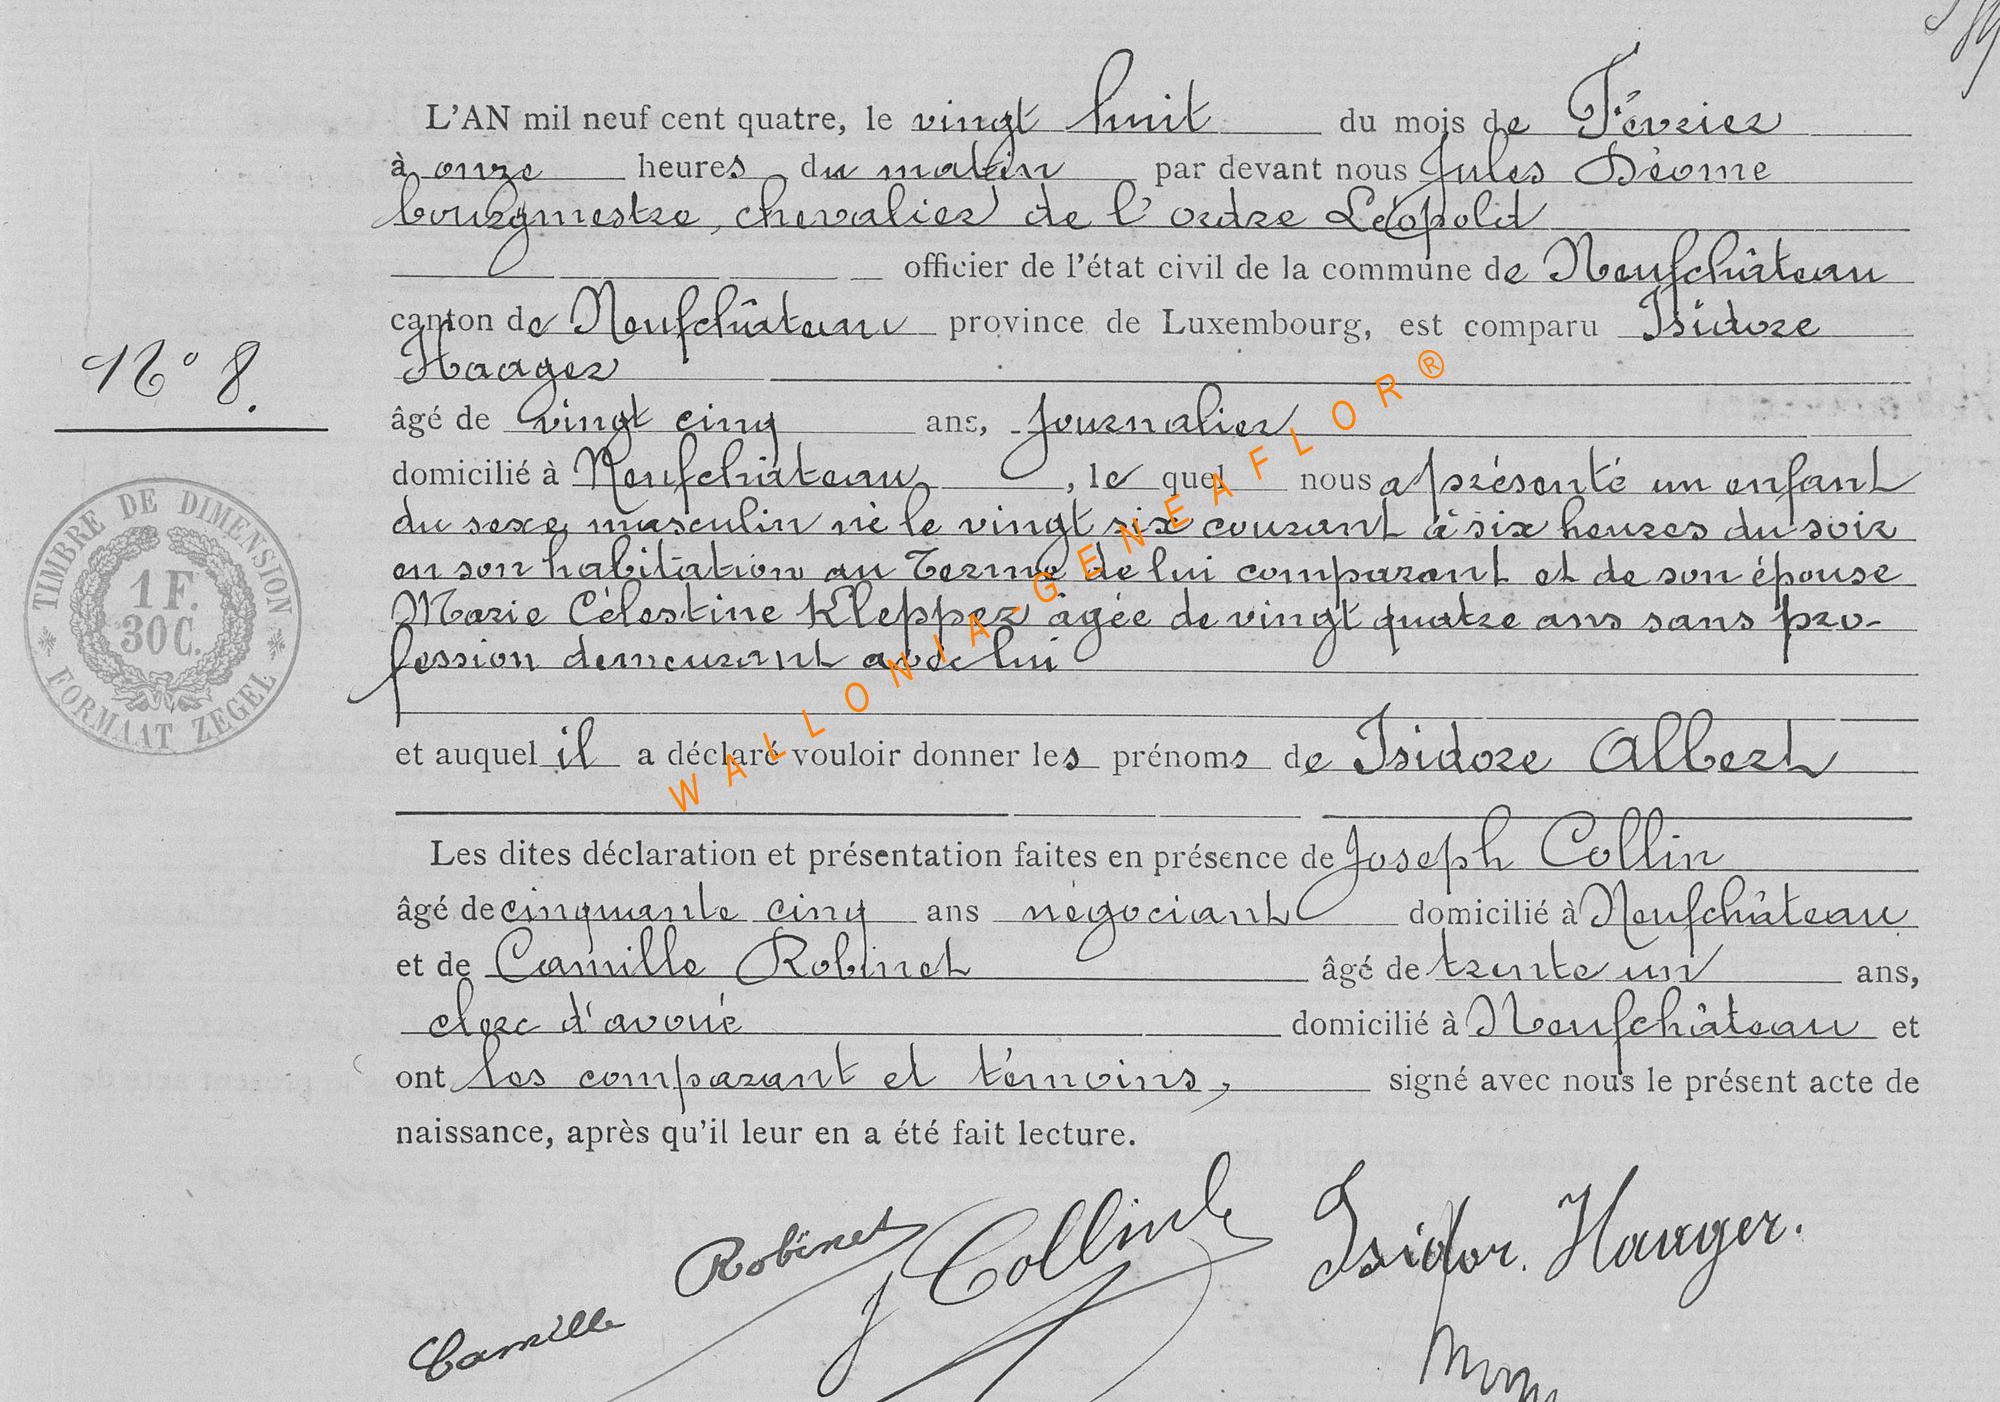 L'AN mil neuf cent quatre, le vingt huit du mois de Février
à onze heures du matin par devant nous Jules Déome
bourgmestre, chevalier de l'ordre Léopold
officier de l'état civil de la commune de Neufchâteau
canton de Neufchâteau province de Luxembourg, est comparu Isidore
Haager
N° 8.
âgé de vingt cinq ans, journalier
domicilié à Neufchâteau, le quel nous a présenté un enfant
du sexe masculin né le vingt six courant à six heures du soir
en son habitation au Terme de lui comparant et de son épouse
Marie Célestine Klepper âgée de vingt quatre ans sans pro-
fession demeurant avec lui
et auquel il a déclaré vouloir donner les prénoms de Isidore Albert
Les dites déclaration et présentation faites en présence de Joseph Collin
âgé de cinquante cinq ans négociant domicilié à Neufchâteau
et de Camille Robinet âgé de trente un ans,
clerc d'avoué domicilié à Neufchâteau et
ont les comparant et témoins, signé avec nous le présent acte de
naissance, après qu'il leur en a été fait lecture.
TIMBRE DE DIMENSION
1 F.
30 C.
FORMAAT ZEGEL
WALLONIA-GENEAFLOR®
Camille Robinet J Collin Isidor. Haager.